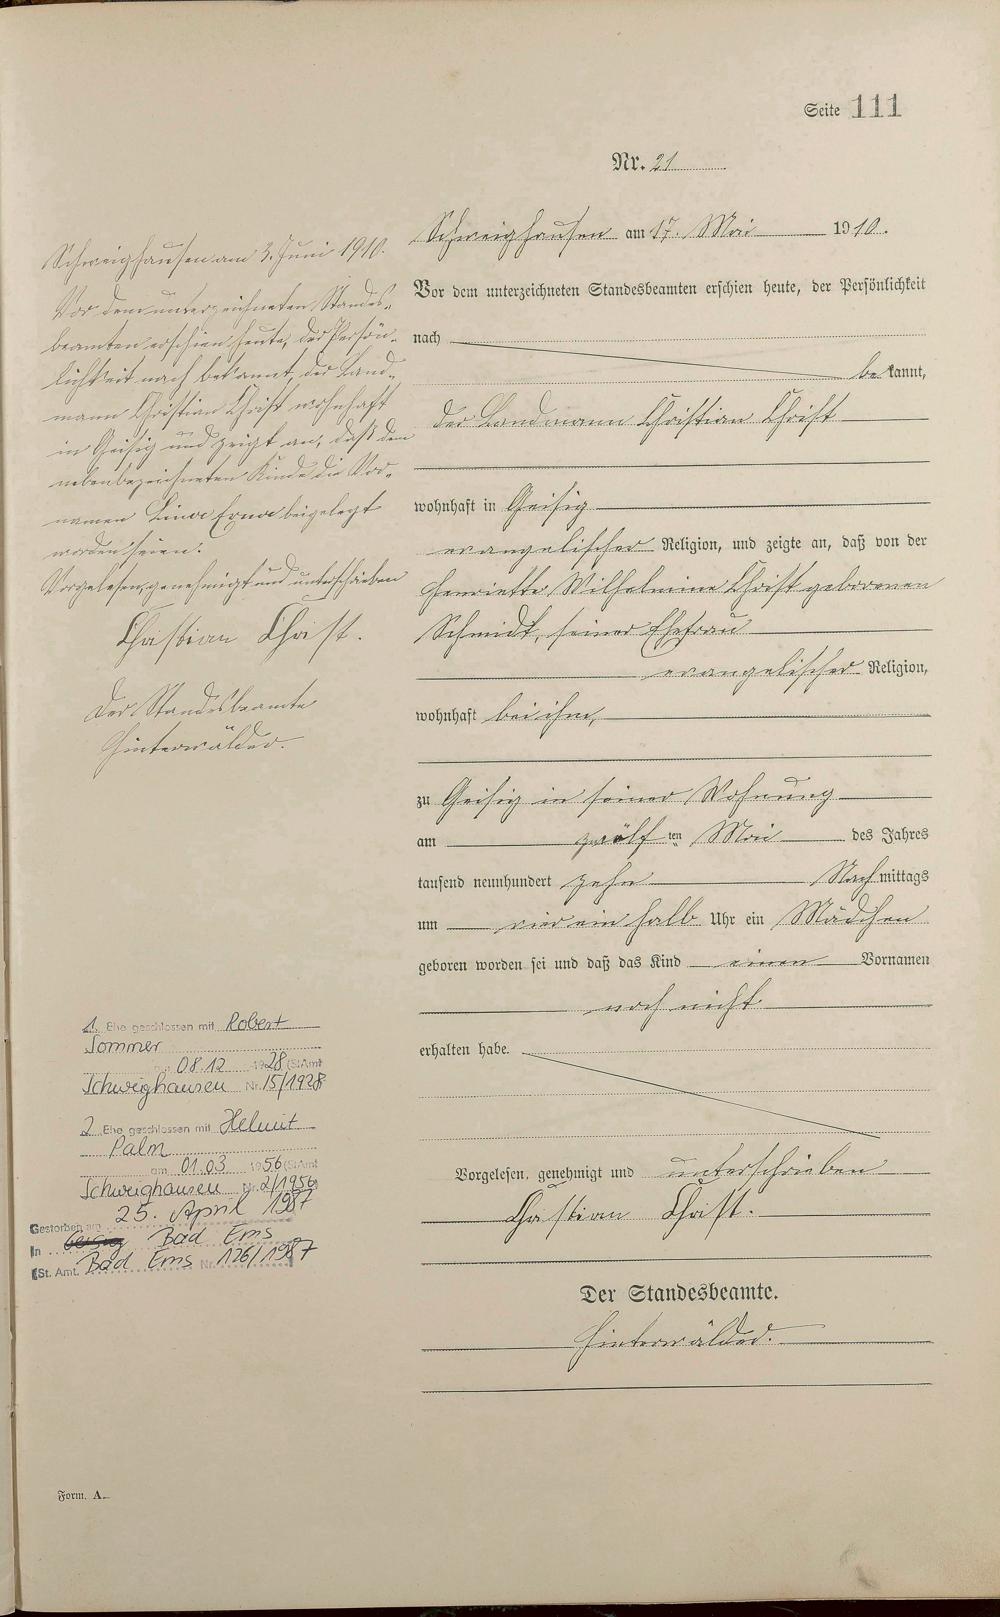 Seite 111
Nr. 21
Schweighausen am 17. Mai 1910.
Vor dem unterzeichneten Standesbeamten erschien heute, der Persönlichkeit
nach
bekannt,
der Landmann Christian Christ
wohnhaft in Geisig
evangelischer Religion, und zeigte an, daß von der
Henriette Wilhelmine Christ geborenen
Schmidt, seiner Ehefrau
evangelischer Religion,
wohnhaft bei ihm,
zu Geisig in seiner Wohnung
am zwölf ten Mai des Jahres
tausend neunhundert zehn Nachmittags
um vier ein halb Uhr ein Mädchen
geboren worden sei und daß das Kind einen Vornamen
noch nicht
erhalten habe.
Vorgelesen, genehmigt und unterschrieben
Christian Christ.
Der Standesbeamte.
Hinterwälder.
Schweighausen am 3. Juni 1910.
Vor dem unterzeichneten Standes-
beamten erschien heute, der Persön-
lichkeit nach bekannt, der Land-
mann Christian Christ wohnhaft
in Geisig und zeigt an, daß dem
nebenbezeichneten Kinde die Vor-
namen Lina Erna beigelegt
worden seien.
Vorgelesen, genehmigt und unterschrieben
Christian Christ.
Der Standesbeamte
Hinterwälder.
1. Ehe geschlossen mit Robert
Sommer
am 08.12 1928 (StAmt
Schweighausen Nr. 15/1928
2 Ehe geschlossen mit Helmut
Palm
am 01.03 1956 (StAmt
Schweighausen Nr. 2/1956
Gestorben am 25. April 1987
In Geisig Bad Ems
(St. Amt. Bad Ems Nr. 126/1987
Form. A.